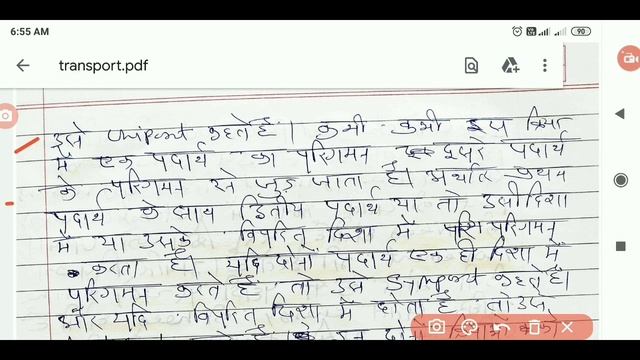 6:55 AM
90
transport.pdf
इसे Uniport कहते हैं। कभी-कभी इस क्रिया
में एक पदार्थ का परिगमन दूसरे पदार्थ
के परिगमन से जुड़ जाता है। अर्थात प्रथम
पदार्थ के साथ द्वितीय पदार्थ या तो उसी दिशा
में या उसके विपरित दिशा में परिगमन
करता है। यदि दोनो पदार्थ एक ही दिशा में
परिगमन करते हैं तो उसे Symport कहते हैं।
और यदि विपरित दिशा में होता है तो उसे